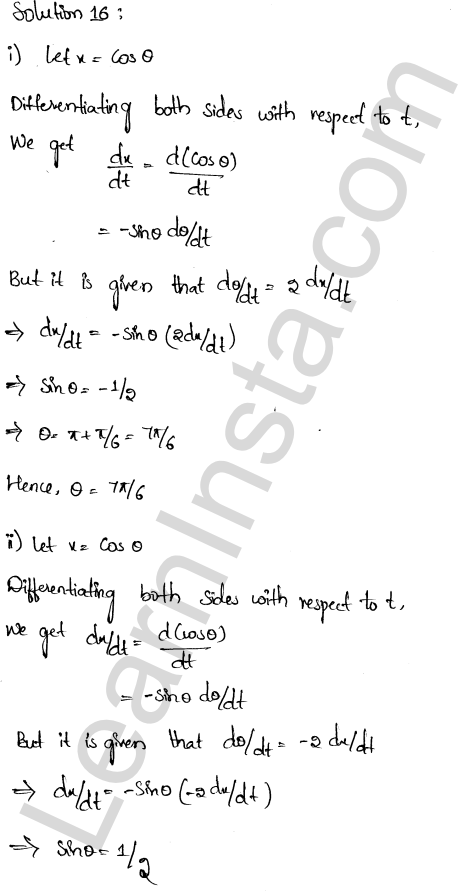 Solution 16 :
i) let x = Cos θ
Differentiating both sides with respect to t,
We get dx/dt = d(Cos θ)/dt
= -sinθ dθ/dt
But it is given that dθ/dt = 2 dx/dt
⇒ dx/dt = -sin θ (2dx/dt)
⇒ sinθ = -1/2
⇒ θ = π + π/6 = 7π/6
Hence, θ = 7π/6
ii) let x = Cos θ
Differentiating both sides with respect to t,
We get dx/dt = d(cosθ)/dt
= -sinθ dθ/dt
But it is given that dθ/dt = -2 dx/dt
⇒ dx/dt = -sinθ (-2 dx/dt)
⇒ sinθ = 1/2
LearnInsta.com